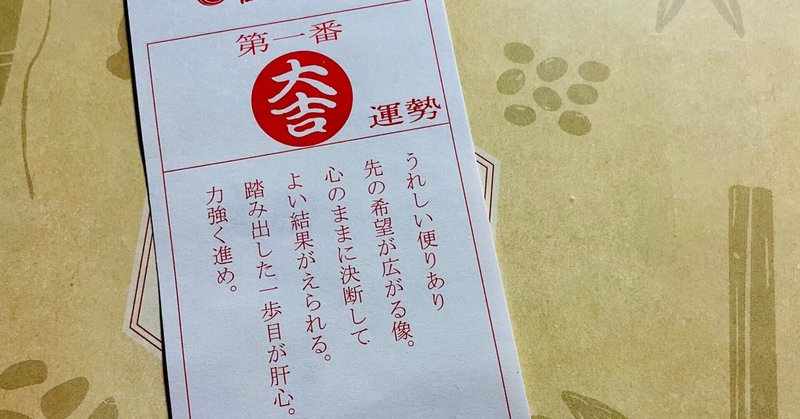 第一番
大吉
運勢
うれしい便りあり
先の希望が広がる像。
心のままに決断して
よい結果がえられる。
踏み出した一歩目が肝心。
力強く進め。